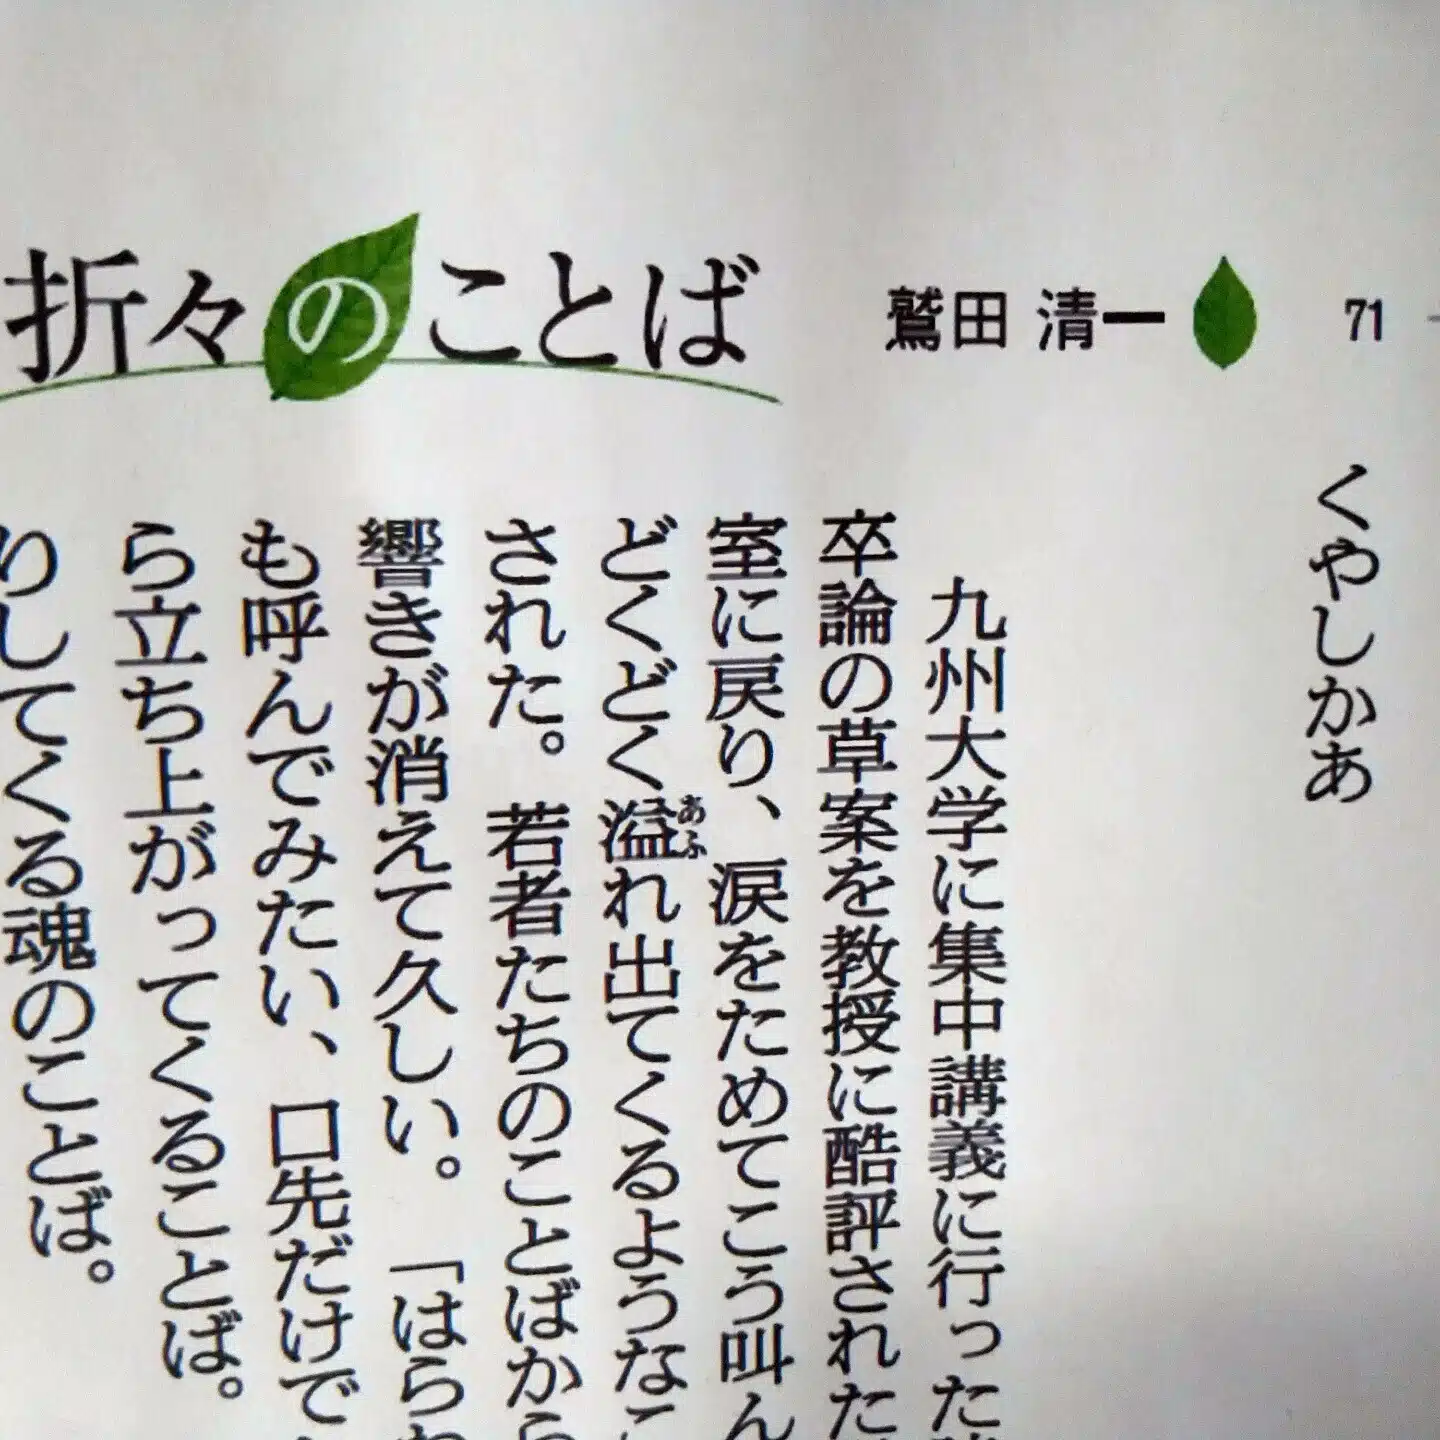 折々のことば
鷲田 清一
71
くやしかあ
九州大学に集中講義に行った
卒論の草案を教授に酷評された
室に戻り、涙をためてこう叫ん
どくどく溢れ出てくるような
あふ
された。若者たちのことばか
響きが消えて久しい。「はら
も呼んでみたい、口先だけで
ら立ち上がってくることば。
りしてくる魂のことば。